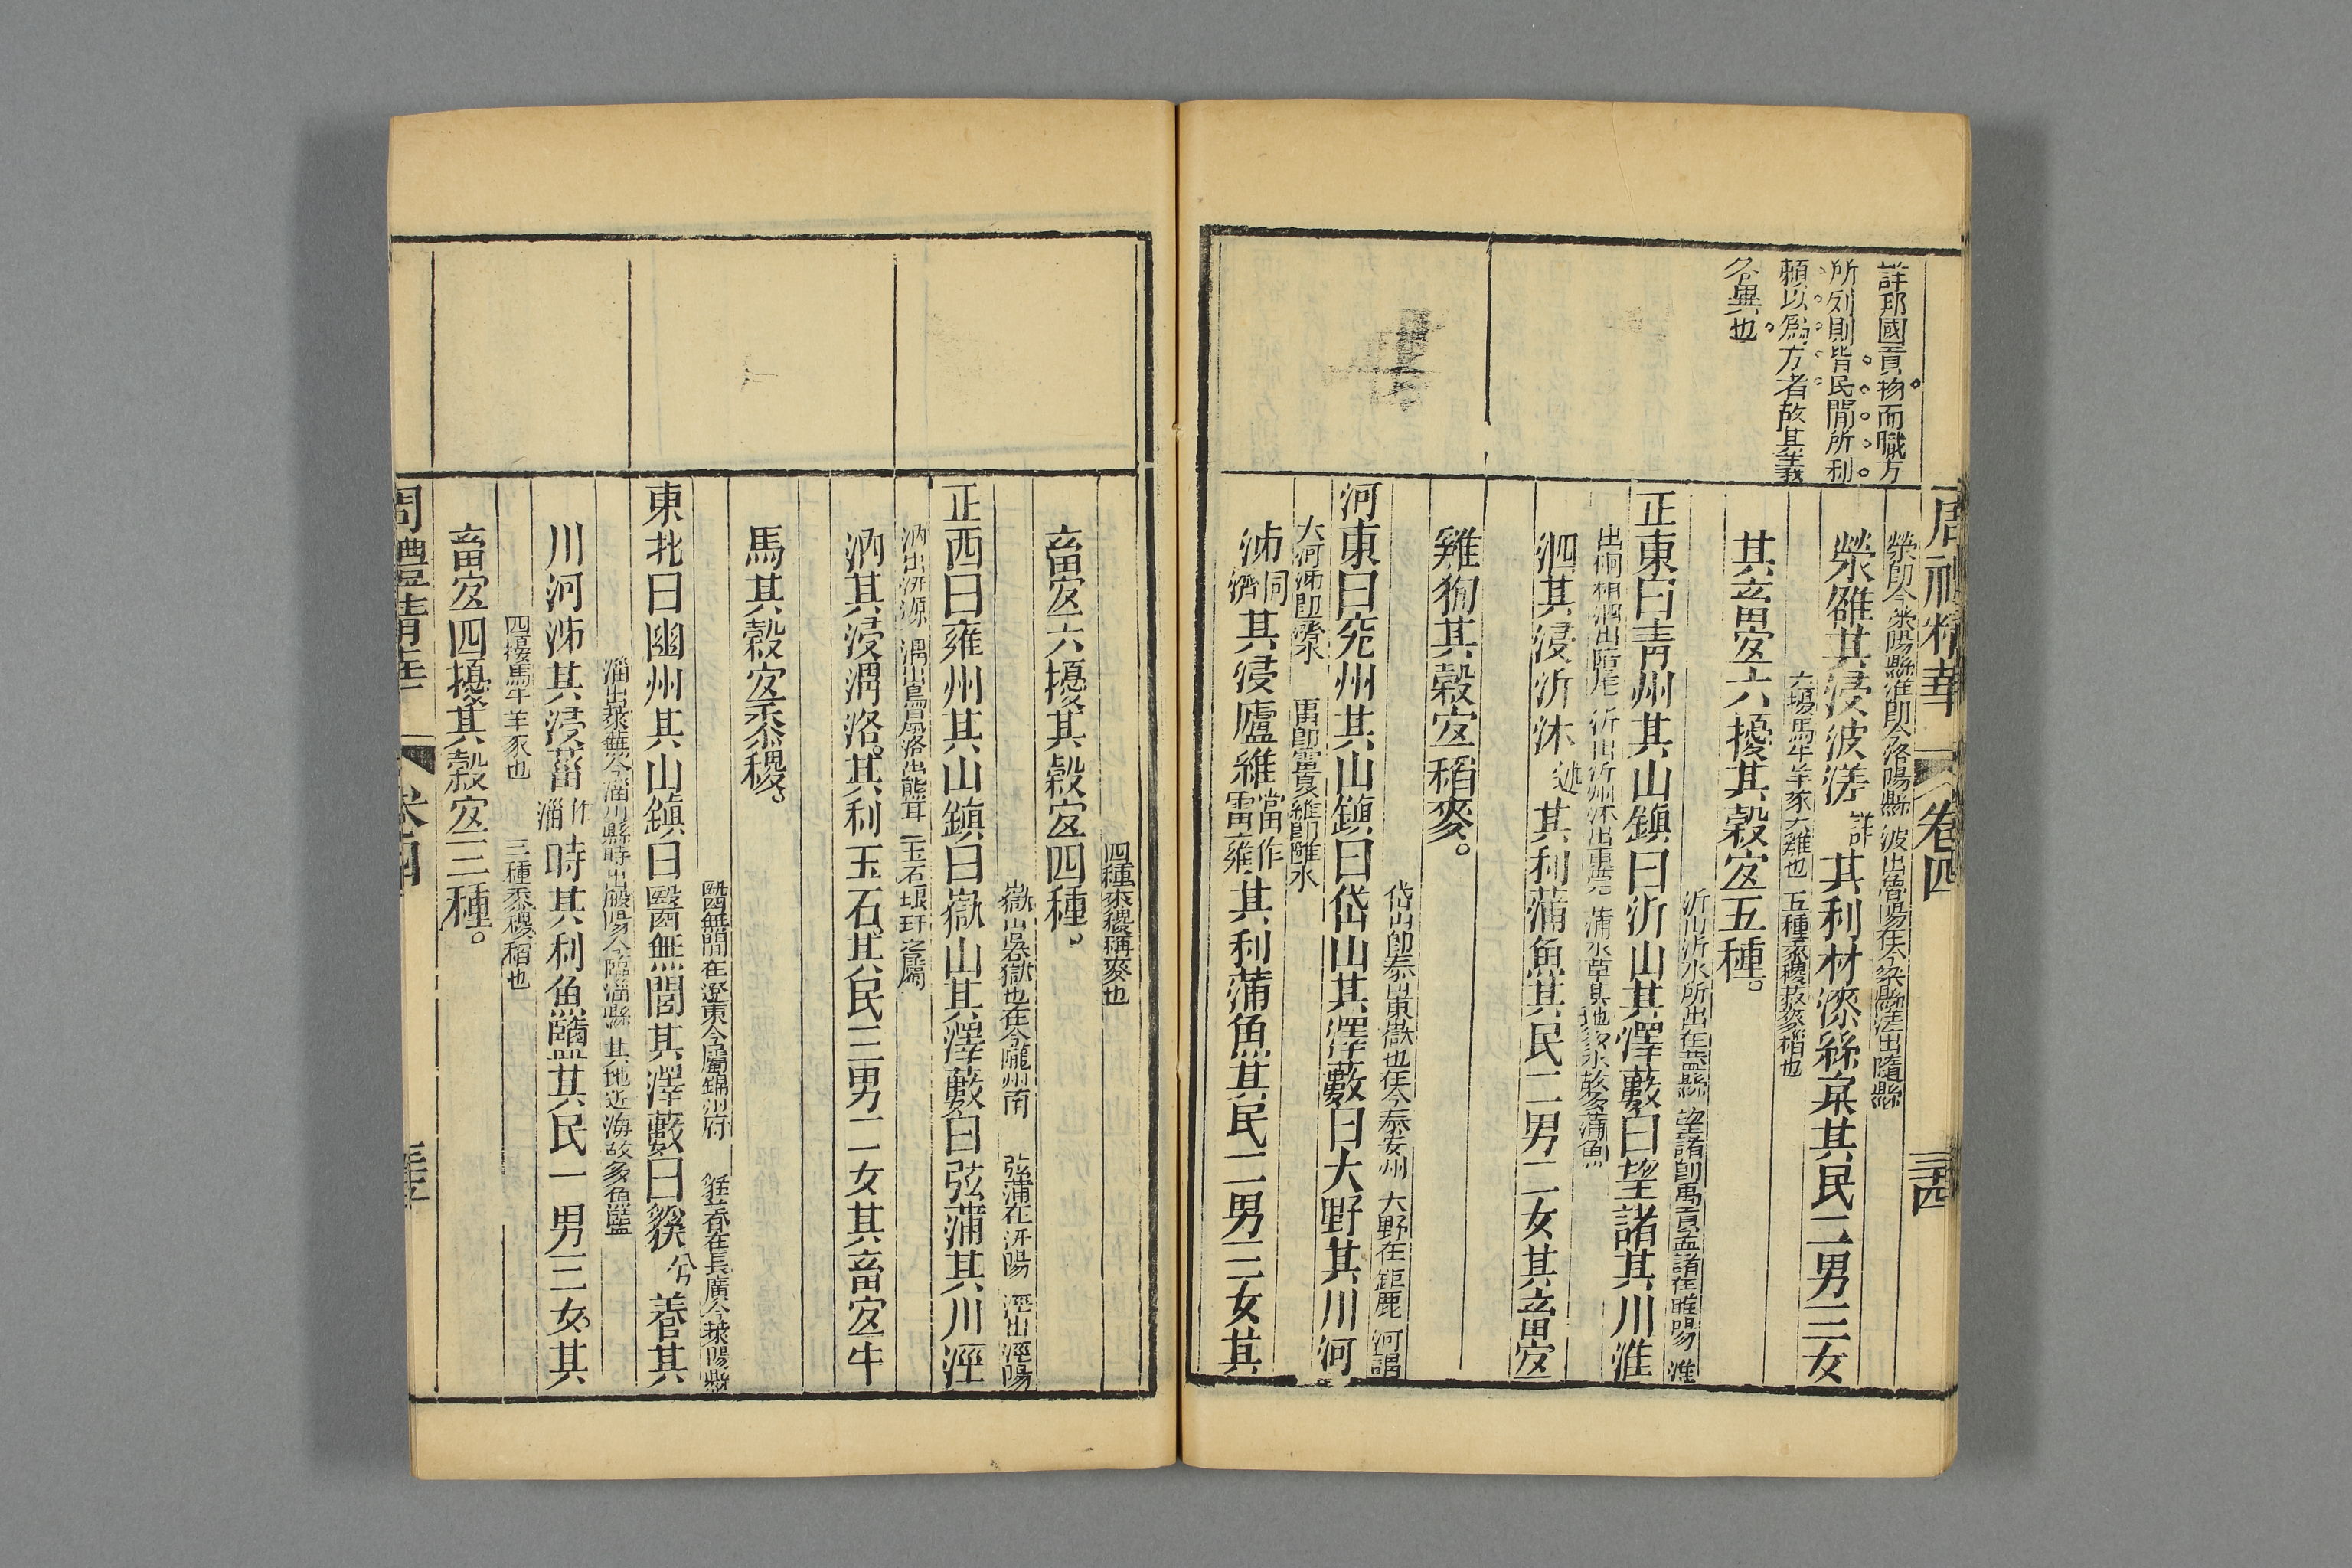 周禮精華 卷四 三四
詳邦國貢物而職方
所列則皆民間所利
賴以爲方者故其義
各異也
滎卽今滎陽縣雒卽今洛陽縣 波出魯陽在今梁縣溠出隨縣
滎雒其浸波溠詳其利材漆絲枲其民二男三女
六擾馬牛羊豕犬雞也 五種黍稷菽麥稻也
其畜宐六擾其穀宐五種。
沂山沂水所出在葢縣 望諸卽禹貢孟諸在睢陽 淮
正東曰青州其山鎮曰沂山其澤藪曰望諸其川淮
出桐栢泗出陪尾 沂出沂州沭出東莞 蒲水草其地多水故多蒲魚
泗其浸沂沭述其利蒲魚其民二男二女其畜宐
雞狗其穀宐稻麥。
岱山卽泰山東嶽也在今泰安州 大野在鉅鹿 河謂
河東曰兖州其山鎮曰岱山其澤藪曰大野其川河
大河泲卽濟水 盧卽雷夏維卽雝水
泲同濟其浸廬維當作雷雍其利蒲魚其民二男三女其
四種黍稷稻麥也
畜宐六擾其穀宐四種。
嶽山吳嶽也在今隴州南 弦蒲在汧陽 涇出涇陽
正西曰雍州其山鎮曰嶽山其澤藪曰弦蒲其川涇
汭出汧源 渭出鳥鼠洛出熊耳 玉石琅玕之屬
汭其浸渭洛。其利玉石。其民三男二女其畜宐牛
馬其穀宐黍稷。
醫無閭在遼東今屬錦州府 貕養在長廣今萊陽縣
東北曰幽州其山鎮曰醫無閭其澤藪曰貕兮養其
菑出萊蕪今淄川縣時出般陽今臨淄縣 其地近海故多魚鹽
川河泲其浸菑作淄時其利魚鹽其民一男三女其
四擾馬牛羊豕也 三種黍稷稻也
畜宐四擾其穀宐三種。
周禮精華 卷四